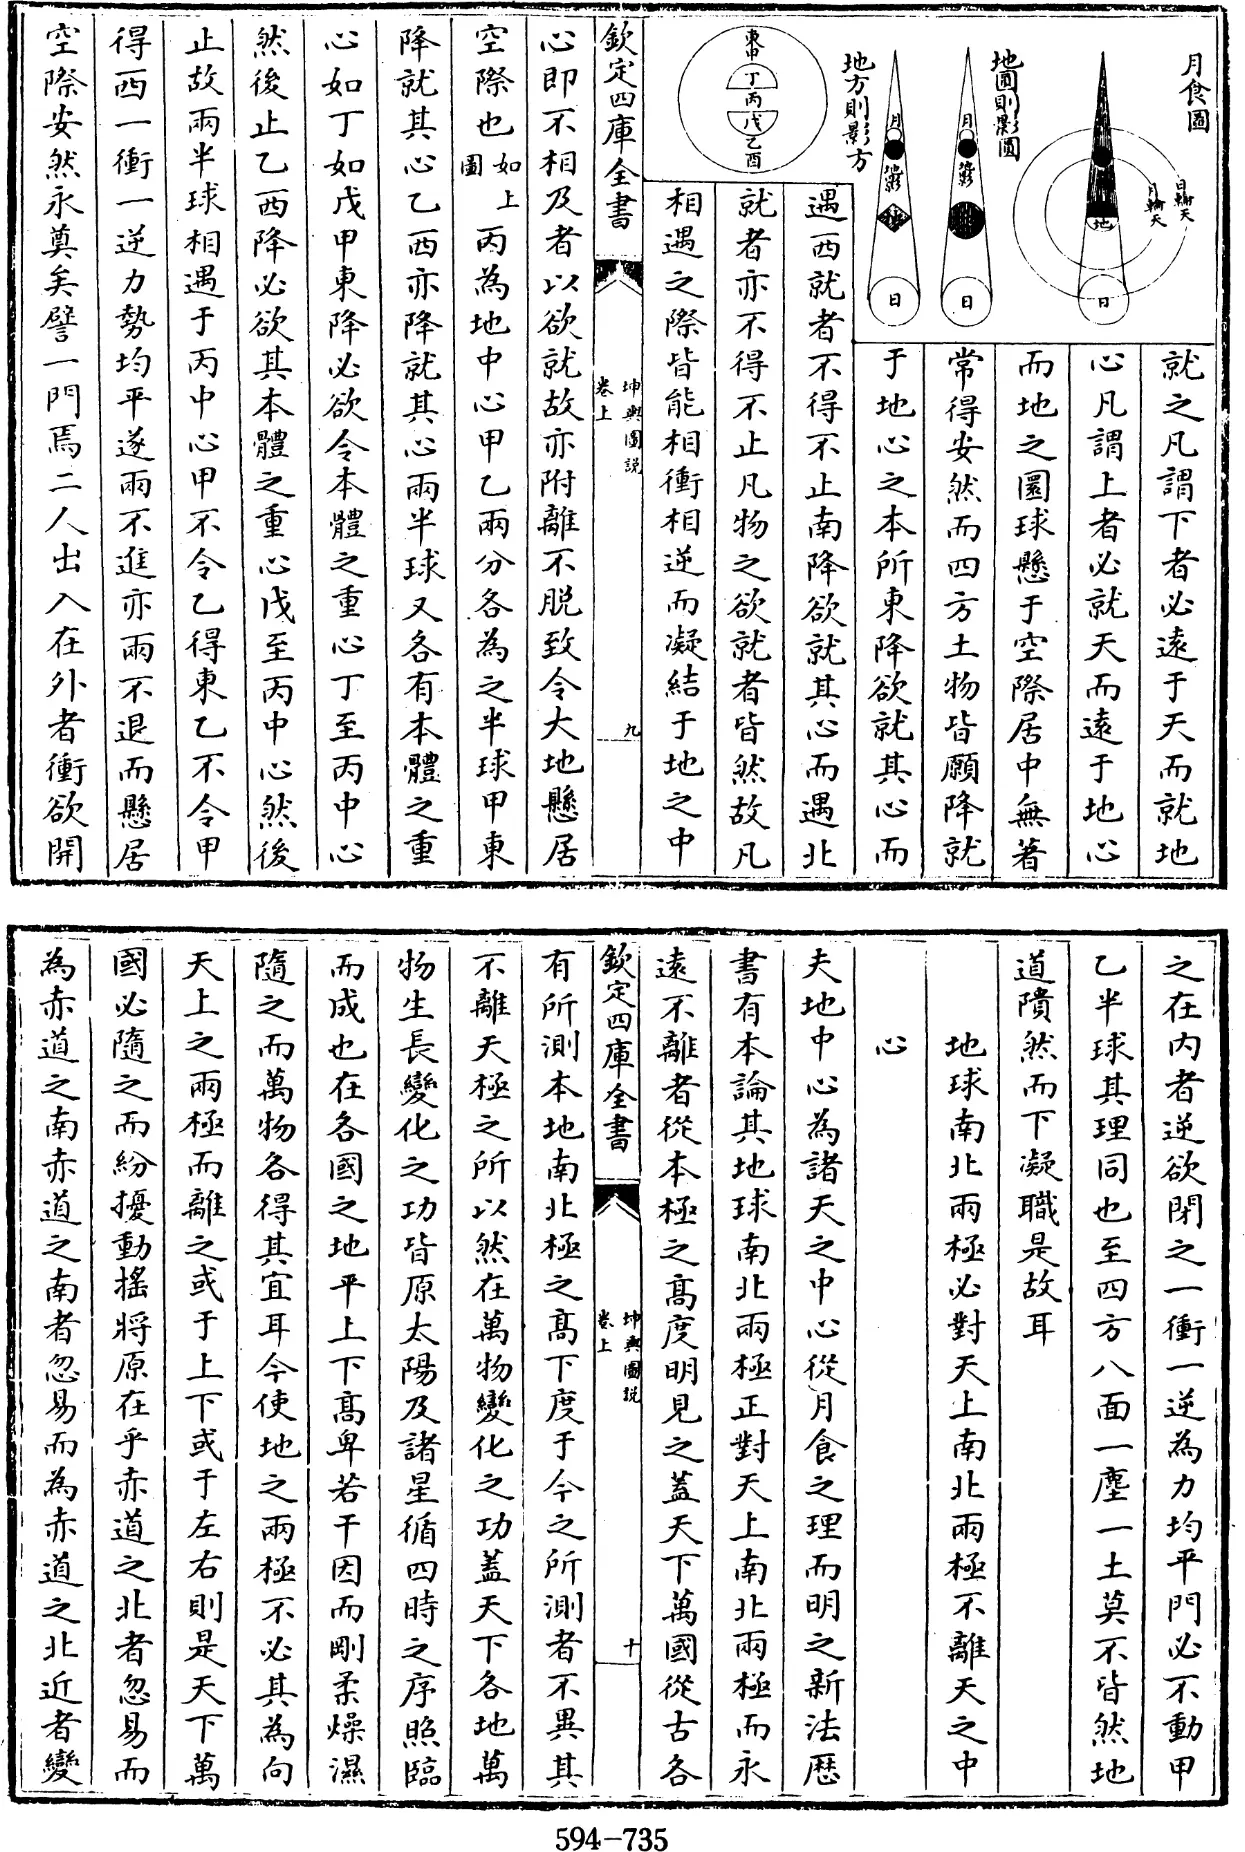 月食圖
日輪天
月輪天
地
日
地圓則影圓
月
地影
日
地方則影方
月
地影
地
日
東甲丁丙戊乙酉
就之凡謂下者必遠于天而就地
心凡謂上者必就天而遠于地心
而地之圜球懸于空際居中無著
常得安然而四方土物皆願降就
于地心之本所東降欲就其心而
遇西就者不得不止南降欲就其心而遇北
就者亦不得不止凡物之欲就者皆然故凡
相遇之際皆能相衝相逆而凝結于地之中
欽定四庫全書
坤輿圖說
卷上
九
心即不相及者以欲就故亦附離不脱致令大地懸居
空際也如上圖丙為地中心甲乙兩分各為之半球甲東
降就其心乙西亦降就其心兩半球又各有本體之重
心如丁如戊甲東降必欲令本體之重心丁至丙中心
然後止乙西降必欲其本體之重心戊至丙中心然後
止故兩半球相遇于丙中心甲不令乙得東乙不令甲
得西一衝一逆力勢均平遂兩不進亦兩不退而懸居
空際安然永奠矣譬一門焉二人出入在外者衝欲開
之在内者逆欲閉之一衝一逆為力均平門必不動甲
乙半球其理同也至四方八面一塵一土莫不皆然地
道隤然而下凝職是故耳
地球南北兩極必對天上南北兩極不離天之中
心
夫地中心為諸天之中心從月食之理而明之新法歷
書有本論其地球南北兩極正對天上南北兩極而永
遠不離者從本極之髙度明見之蓋天下萬國從古各
欽定四庫全書
坤輿圖說
卷上
十
有所測本地南北極之髙下度于今之所測者不異其
不離天極之所以然在萬物變化之功蓋天下各地萬
物生長變化之功皆原太陽及諸星循四時之序照臨
而成也在各國之地平上下髙卑若干因而剛柔燥濕
隨之而萬物各得其宜耳今使地之兩極不必其為向
天上之兩極而離之或于上下或于左右則是天下萬
國必隨之而紛擾動搖將原在乎赤道之北者忽易而
為赤道之南赤道之南者忽易而為赤道之北近者變
594-735